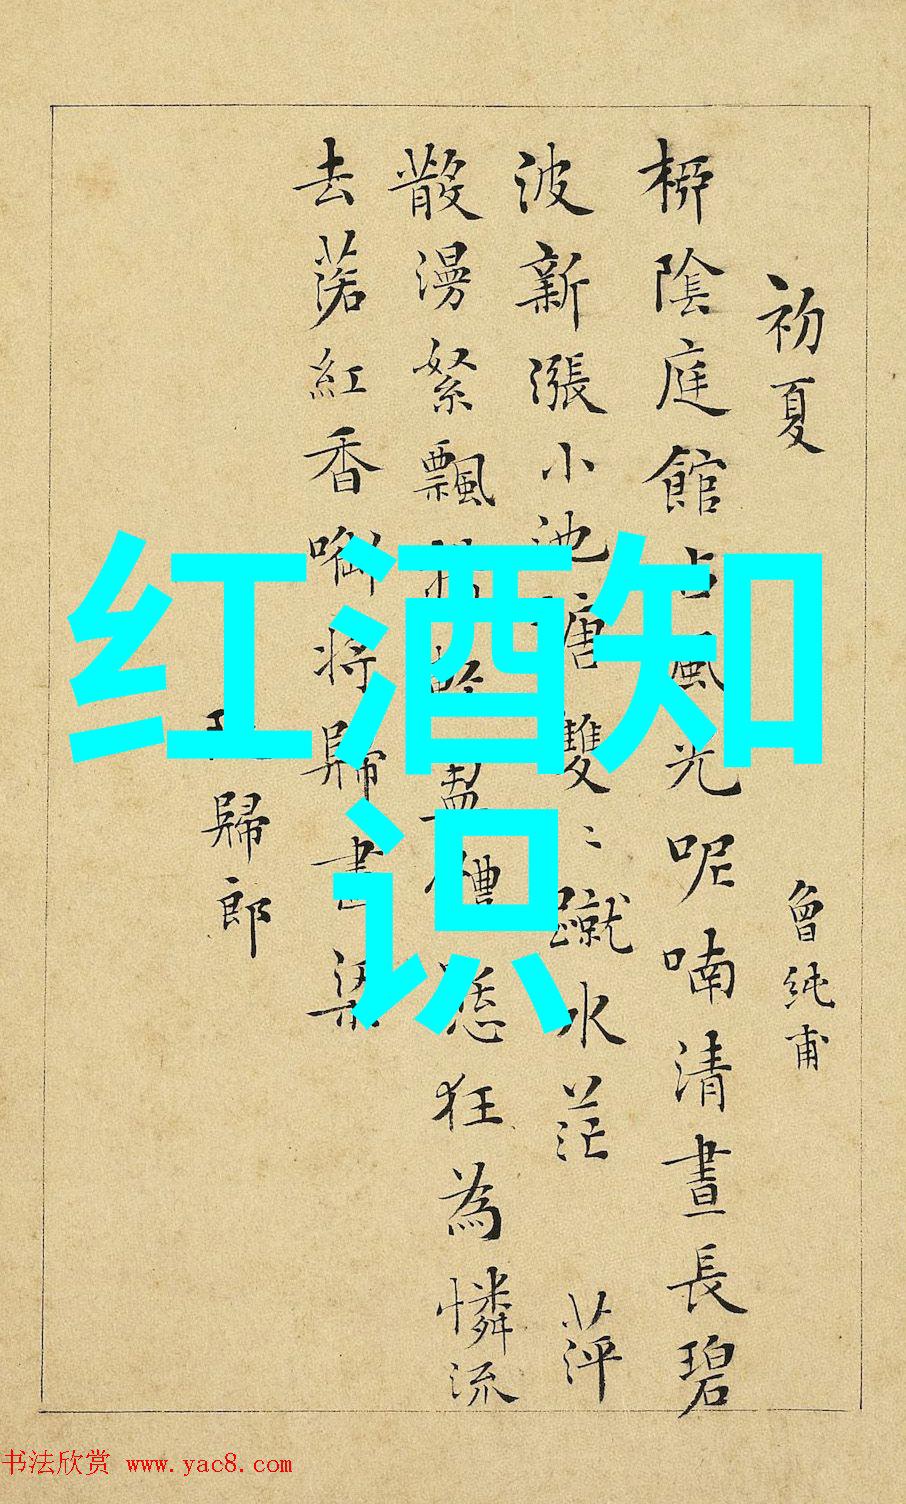 初夏 曾純甫
栁陰庭館占風光呢喃清晝長碧
波新漲小池塘雙〻蹴水茫 萍
散漫絮飄揚輕盈體態狂為憐流
去落紅香啣將歸畫梁
歸郎
红酒知
识
书法欣赏 www.yac8.com